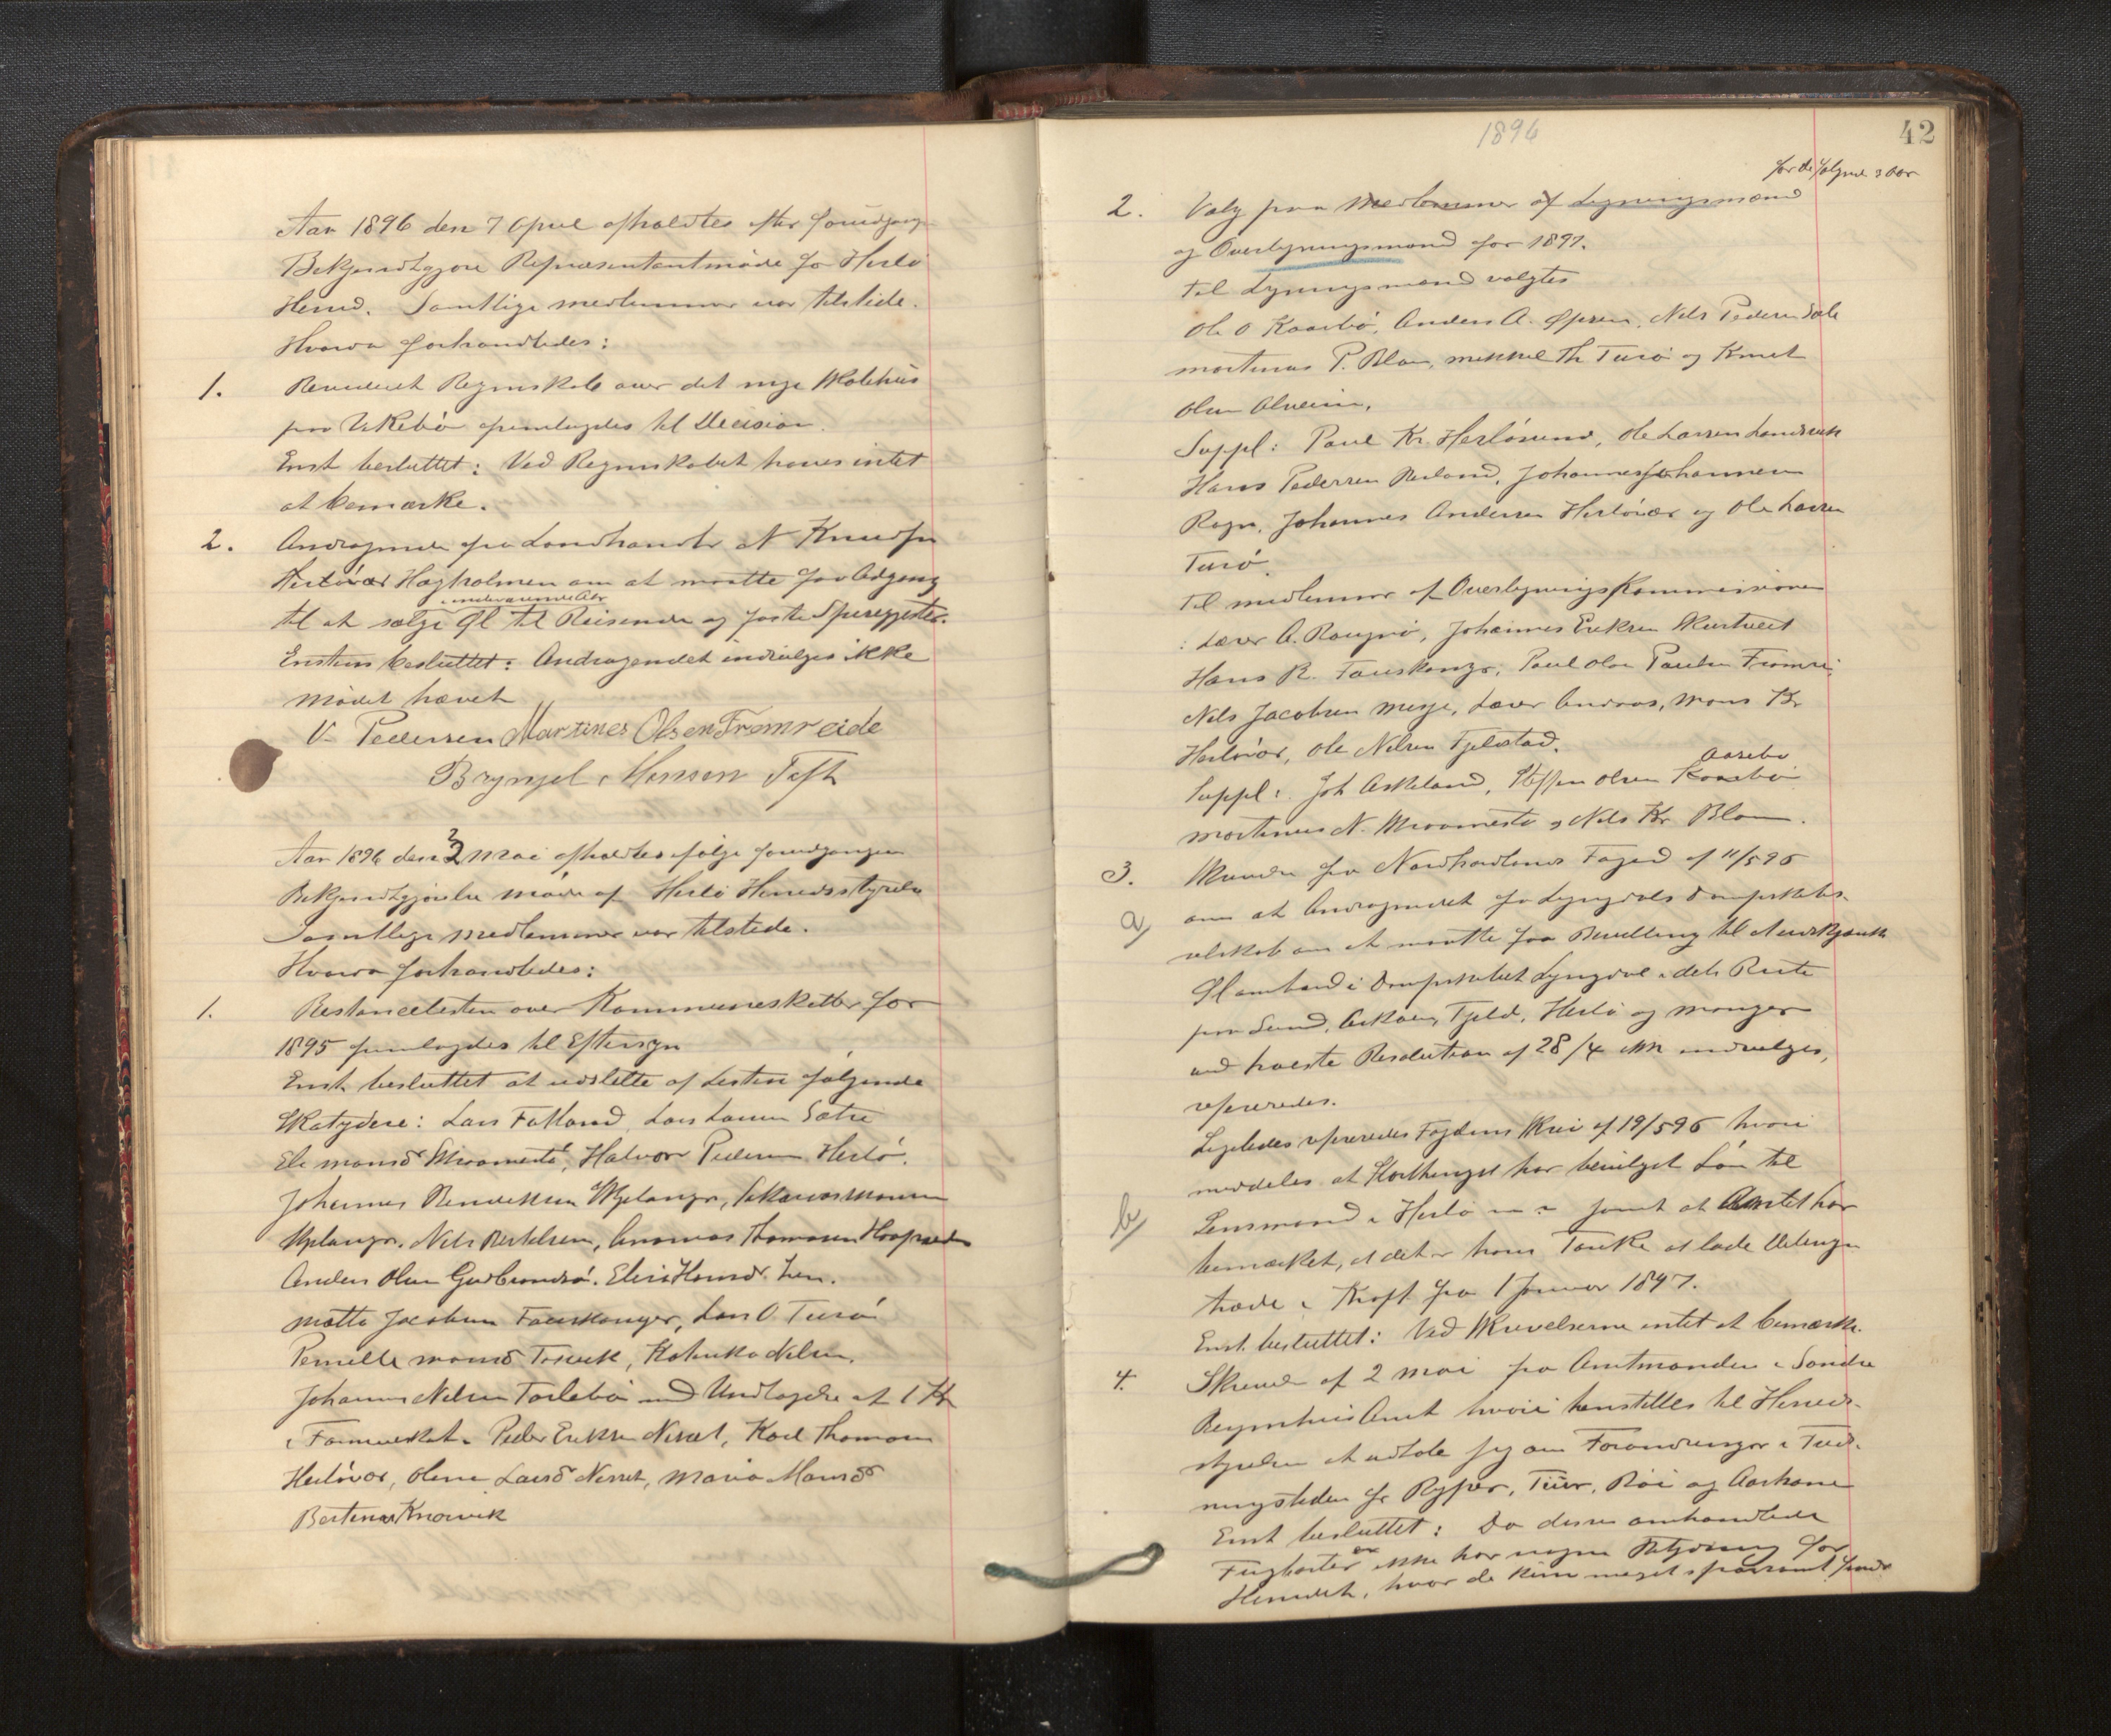 Aar 1896 den 7 April afholdtes efter forudgaaende
Bekjendtgjøre Repræsentantmøde for Herlø
Herred. Samtlige medlemmer var tilstede.
Hvorda forhandledes:
1. Revideret Regnskab over det nye Skolehus
paa Vikebø fremlagdes til Decision.
Enst besluttet: Ved Regnskabet haves intet
at bemærke.
2. Andragende fra Landhandler N Knudsen
Herløvær Hagholmen om at maatte faa Adgang
indeværende Aar
til at sælge Øl til Reisende og faste Spisegjester.
Enstem besluttet: Andragendet indvilges ikke
Mødet hævet
V. Pedersen Martines Olsen Fromreide
Bryngel Monsen Toft
Aar 1896 den 2 Mai afholdtes ifølge forudgangen
Bekjendtgjørelse møde af Herlø Herredsstyrelse
Samtlige medlemmer var tilstede.
Hvorda forhandledes:
1. Restancelisten over Kommuneskatter for
1895 fremlagdes til Eftersyn
Enst besluttet at udslette af Listen følgende
Skatydere: Lars Fatland Lars Larsen Sætre
Eli Monsd Misvameste, Halvor Pedersen Herlø.
Johannes Bendiktsen Mjelanger,
Nils Bertelsen, Andreas Thomasen
Anders Olsen Gudbrandsø. Elisi Hansd.
Matte Jacobsen Fauskanger, Lars O Turø
Pernille Monsd Toskvik, Katrika Nilsen.
Johannes Nilsen Torlebø med Undtagelse af 1 Kr
i Formueskat. Peder Eriksen Nesset, Karl Thomasen
Herløvær, Olene Larsd Nesset, Maria Monsd
Bertinus Knarvik
1896
42
for de følgende 3 Aar
2. Valg paa Medlemmer af Ligningsmænd
og Overligningsmænd for 1897.
Til Ligningsmænd valgtes
Ole O Kaarbø, Anders A. Øpsen, Nils Pedersen Dale
Martinus P. Blom, Mikkel Th Turø og Knut
Olsen Alveim,
Suppl: Paul Kr. Herløsund, Ole Larsen Landsvik
Hans Pedersen Husland, Johannes Johannesen
Rogn, Johannes Andersen Herløvær og Ole Larsen
Turø.
Til medlemmer af Overligningskommisionen
: Lærer A. Rongevø, Johannes Eriksen Skurtveit
Hans R. Fauskanger, Paul Olai Paulsen Fromrei,
Nils Jacobsen Meije, Lærer Andaas, Mons Kr
Herløvær, Ole Nilsen Tjeldstad.
Aasebø
Suppl: Joh Askeland, Steffen Olsen Kaasebø
Martinus N. Misvameste og Nils Kr Blom.
3. Skrivelse fra Nordhordlands Foged af 11/5 96
a) om at Andragendet fra Lyngdals Dampskibs-
selskab om at maatte faa Bevilling til Udskjænk
Øl ombord i Dampskibet Lyngdal i dets Rute
paa Sund, Askøen, Fjeld, Herlø og Manger
ved høieste Resolution af 28/4 ikke indvilges,
refereredes.
Ligeledes refereredes Fogdens Skriv af 19/5 96 hvori
meddeles at Storthinget har bevilget Løn til
b) Lensmand i Herlø samt at Amtet har
bemærket, at det er hans Tanke at lade Delingen
træde i Kraft fra 1 Januar 1897.
Enst besluttet: Ved Skrivelserne intet at bemærke.
4. Skrivelse af 2 Mai fra Amtmanden i Søndre
Bergenhus Amt hvori henstilles til Herreds-
styrelsen at udtale sig om Forandringer i Fred-
ningstiden for Ryper, Tiur, Røi og Aarhane
Enst besluttet: Da disse omhandlede
Fuglearter ikke har nogen Betydning for
Herredet, hvor de kun meget sparsomt findes